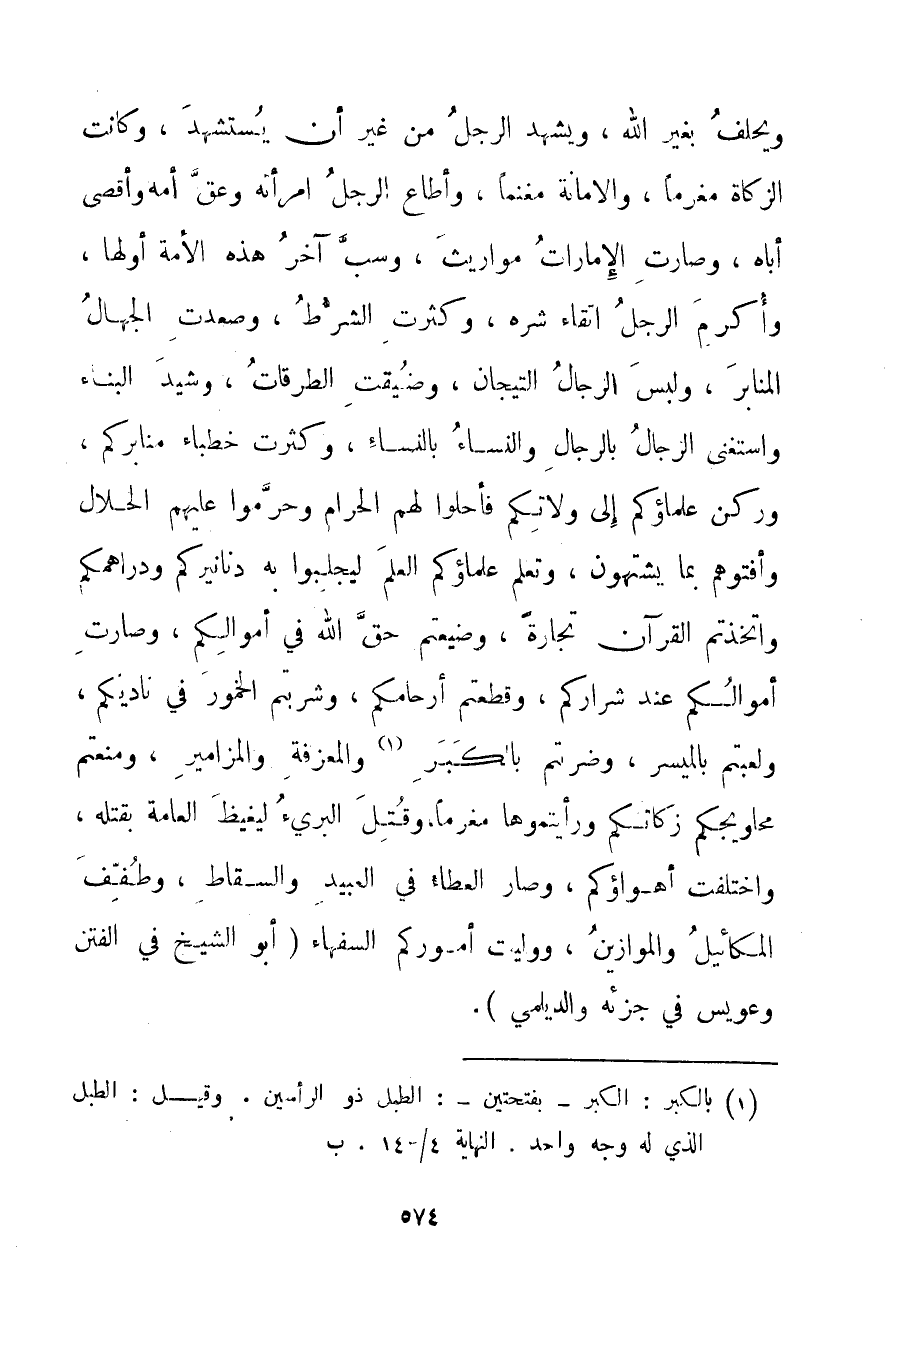 ويحلفُ بغير الله ، ويشهد الرجلُ من غير أن يُستشهدَ ، وكانت
الزكاة مغرماً ، والامانة مغنماً ، وأطاع الرجلُ امرأته وعقَّ أمه وأقصى
أباه ، وصارتِ الإماراتُ مواريثَ ، وسبَّ آخرُ هذه الأمة أولها ،
وأُكرمَ الرجلُ اتقاء شره ، وكثرتِ الشرطُ ، وصعدتِ الجهالُ
المنابرَ ، ولبسَ الرجالُ التيجان ، وضُيقتِ الطرقاتُ ، وشيدَ البناء
واستغنى الرجالُ بالرجالِ والنساءُ بالنساءِ ، وكثرت خطباء منابركم ،
وركن علماؤكم إلى ولاتكم فأحلوا لهم الحرام وحرَّموا عليهم الحلال
وأفتوهم بما يشتهون ، وتعلم علماؤكم العلمَ ليجلبوا به دنانيركم ودراهمكم
واتخذتم القرآن تجارةً ، وضيعتم حقَّ الله في أموالكم ، وصارتِ
أموالُكم عند شراركم ، وقطعتم أرحامكم ، وشربتم الخمورَ في ناديكم ،
ولعبتم بالميسر ، وضربتم بالكَبَرِ (١) والمعزفةِ والمزاميرِ ، ومنعتم
محاويجكم زكاتكم ورأيتموها مغرماً، وقُتِلَ البريءُ ليغيظَ العامة بقتله ،
واختلفت أهواؤكم ، وصار العطاء في العبيدِ والسقاطِ ، وطُفِّفَ
المكائيلُ والموازينُ ، ووليت أموركم السفهاء ( أبو الشيخ في الفتن
وعويس في جزئه والديلمي ) .
(١) بالكبر : الكبر – بفتحتين – : الطبل ذو الرأسين . وقيل : الطبل
الذي له وجه واحد . النهاية ٤/١٤٠ . ب
٥٧٤